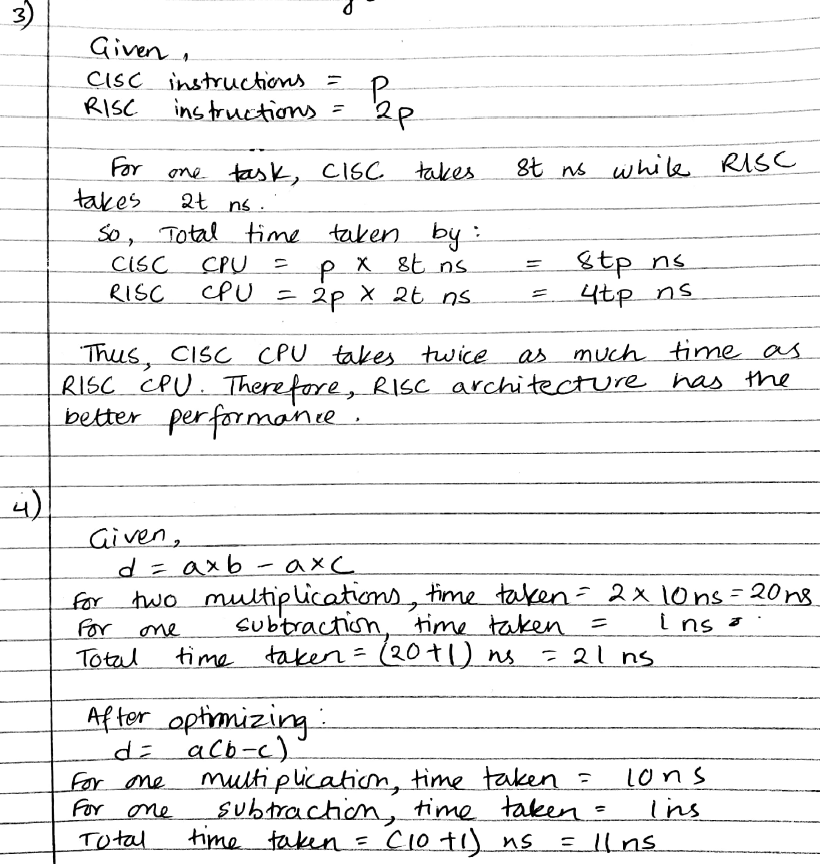 3)
Given,
CISC instructions = p
RISC instructions = 2p
For one task, CISC takes 8t ns while RISC
takes 2t ns.
So, Total time taken by:
CISC CPU = p x 8t ns = 8tp ns
RISC CPU = 2p x 2t ns = 4tp ns
Thus, CISC CPU takes twice as much time as
RISC CPU. Therefore, RISC architecture has the
better performance.
4)
Given,
d = a×b - a×c
For two multiplications, time taken = 2 × 10 ns = 20 ns
For one subtraction, time taken = 1 ns
Total time taken = (20+1) ns = 21 ns
After optimizing:
d = a(b-c)
For one multiplication, time taken = 10 ns
For one subtraction, time taken = 1 ns
Total time taken = (10+1) ns = 11 ns